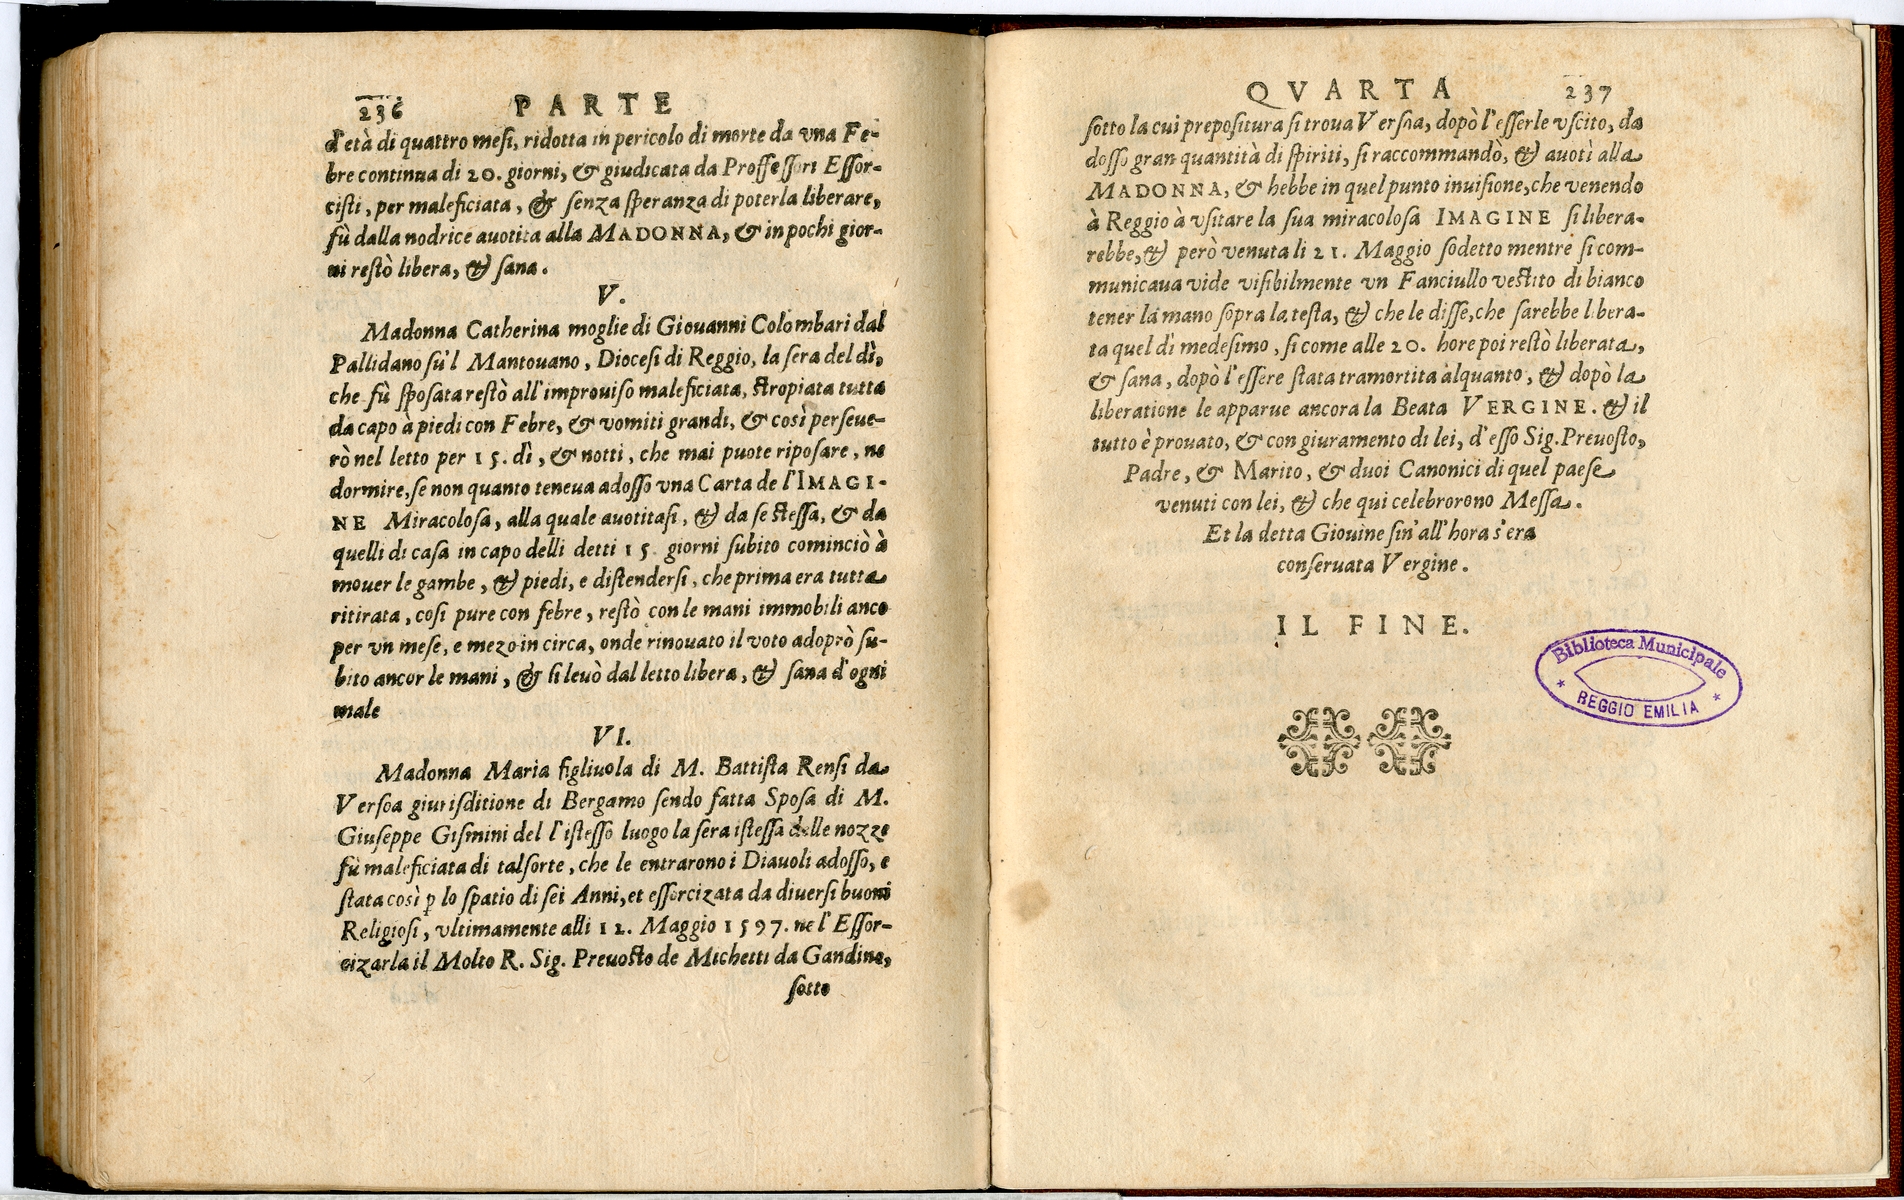 236 PARTE
d'età di quattro mesi, ridotta in pericolo di morte da vna Fe-
bre continua di 20. giorni, & giudicata da Proffessori Essor-
cisti, per maleficiata, & senza speranza di poterla liberare,
fù dalla nodrice auotita alla MADONNA, & in pochi gior-
ni restò libera, & sana.
V.
Madonna Catherina moglie di Giouanni Colombari dal
Pallidano sù'l Mantouano, Diocesi di Reggio, la sera del dì,
che fù sposata restò all'improuiso maleficiata, stropiata tutta
da capo à piedi con Febre, & vomiti grandi, & così perseue-
rò nel letto per 15. dì, & notti, che mai puote riposare, ne
dormire, se non quanto teneua adosso vna Carta de l'IMAGI-
NE Miracolosa, alla quale auotitasi, & da se stessa, & da
quelli di casa in capo delli detti 15 giorni subito cominciò à
mouer le gambe, & piedi, e distendersi, che prima era tutta
ritirata, così pure con febre, restò con le mani immobili anco
per vn mese, e mezo in circa, onde rinouato il voto adoprò su-
bito ancor le mani, & si leuò dal letto libera, & sana d'ogni
male
VI.
Madonna Maria figliuola di M. Battista Rensi da
Versoa giurisditione di Bergamo sendo fatta Sposa di M.
Giuseppe Gismini del l'istesso luogo la sera istessa delle nozze
fù maleficiata di tal sorte, che le entrarono i Diauoli adosso, e
stata così ꝑ lo spatio di sei Anni, et essorcizata da diuersi buoni
Religiosi, vltimamente alli 12. Maggio 1597. ne l'Essor-
cizarla il Molto R. Sig. Preuosto de Michetti da Gandino,
sotto
QVARTA 237
sotto la cui prepositura si troua Versoa, dopò l'esserle vscito, da
dosso gran quantità di spiriti, si raccommandò, & auotì alla
MADONNA, & hebbe in quel punto inuisione, che venendo
à Reggio à vsitare la sua miracolosa IMAGINE si libera-
rebbe, & però venuta li 21. Maggio sodetto mentre si com-
municaua vide visibilmente vn Fanciullo vestito di bianco
tener la mano sopra la testa, & che le disse, che sarebbe libera-
ta quel dì medesimo, si come alle 20. hore poi restò liberata,
& sana, dopò l'essere stata tramortita alquanto, & dopò la
liberatione le apparue ancora la Beata VERGINE. & il
tutto è prouato, & con giuramento di lei, d'esso Sig. Preuosto,
Padre, & Marito, & duoi Canonici di quel paese
venuti con lei, & che qui celebrorono Messa.
Et la detta Giouine sin'all'hora s'era
conseruata Vergine.
IL FINE.
Biblioteca Municipale
* REGGIO EMILIA *